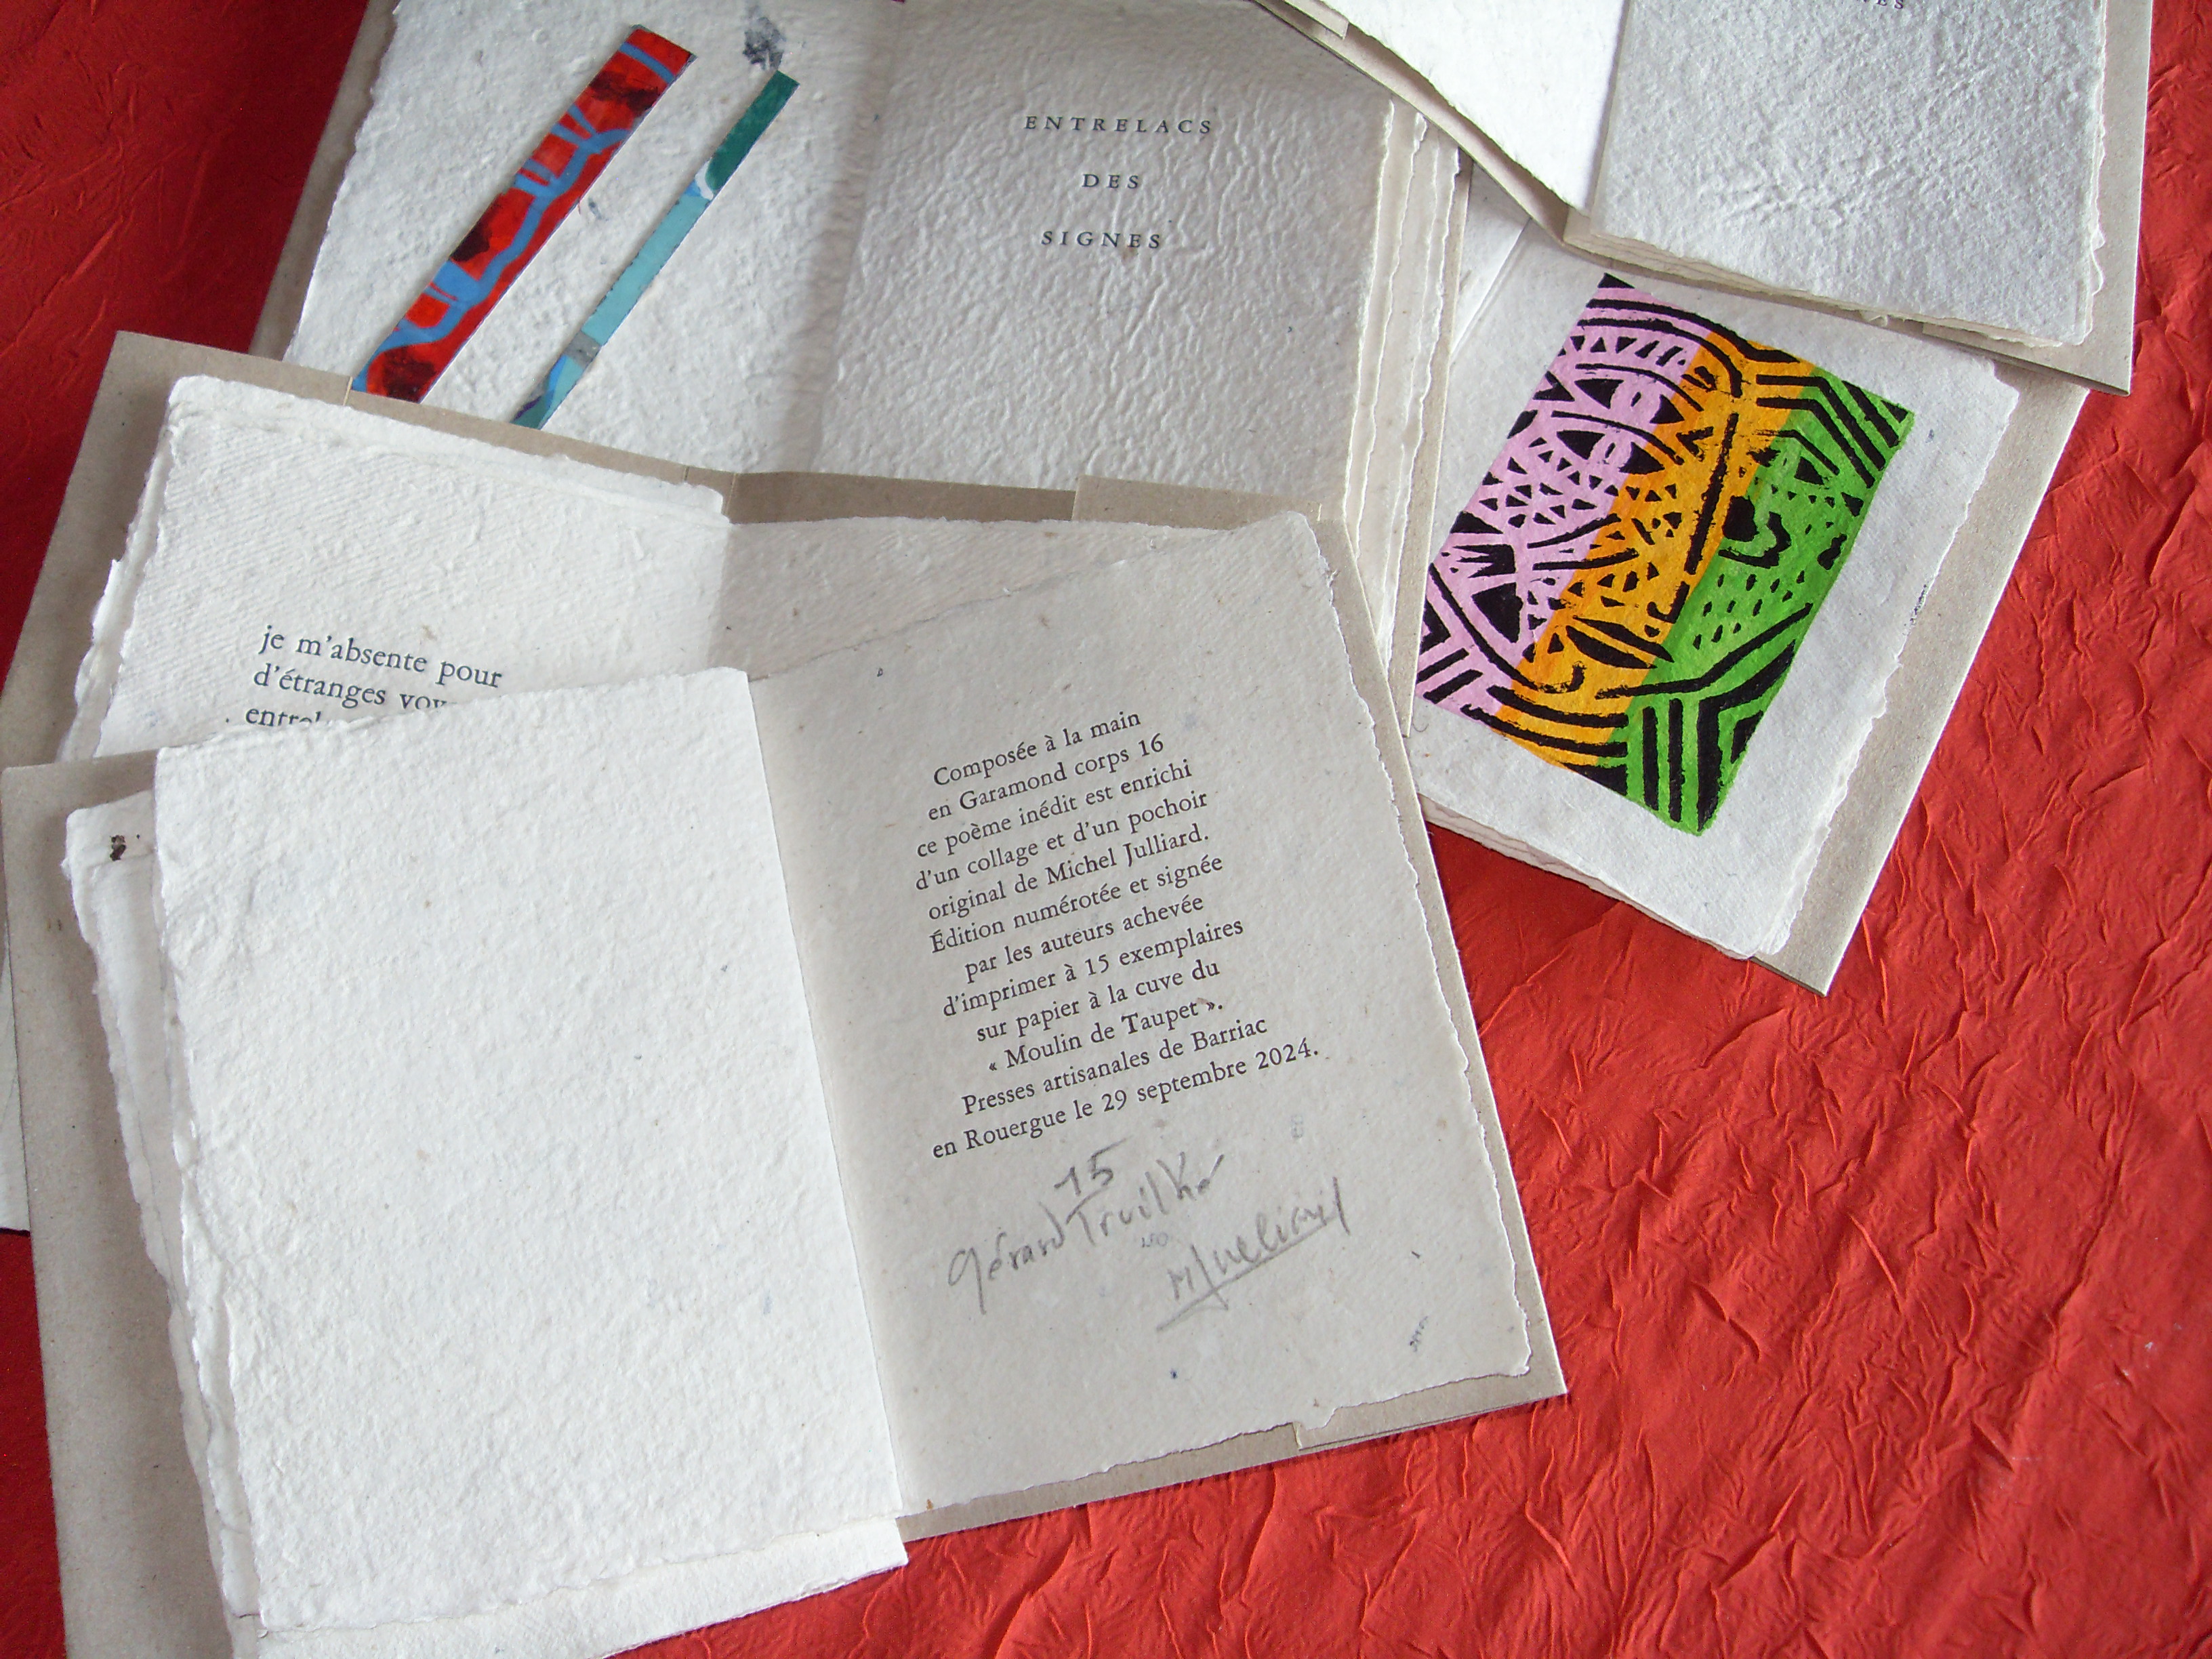 ENTRELACS
DES
SIGNES
je m'absente pour
d'étranges
Composée à la main
en Garamond corps 16
ce poème inédit est enrichi
d'un collage et d'un pochoir
original de Michel Julliard.
Édition numérotée et signée
par les auteurs achevée
d'imprimer à 15 exemplaires
sur papier à la cuve du
« Moulin de Taupet ».
Presses artisanales de Barriac
en Rouergue le 29 septembre 2024.
15
Gérard Truilhé